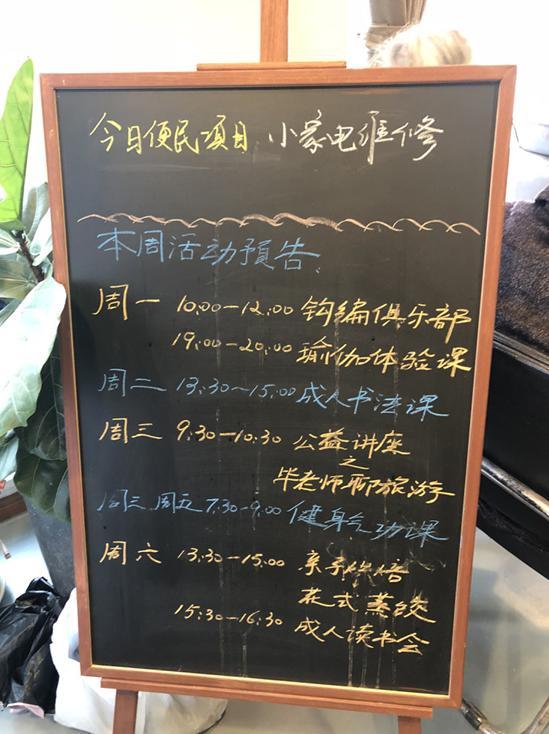 今日便民项目 小家电维修
本周活动預告.
周一 10:00-12:00 钩编俱乐部
19:00-20:00 瑜伽体验课
周二 13:30-15:00 成人书法课
周三 9:30-10:30 公益讲座
之
毕老师聊旅游
周三 周五 7:30-9:00 健身气功课
周六 13:30-15:00 亲子烘焙
花式蒸饺
15:30-16:30 成人读书会